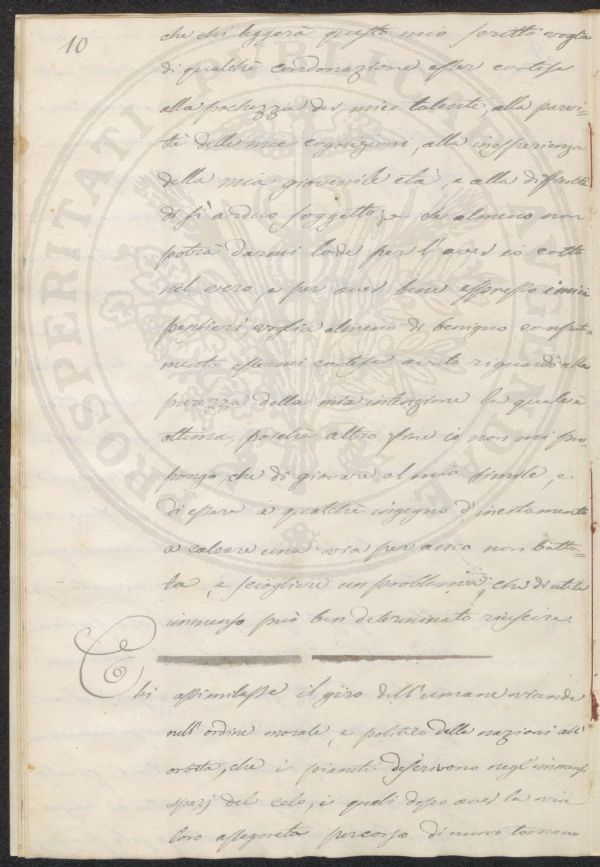 10
che chi leggerà questo mio scritto voglia
di qualche condonazione esser cortese
alla pochezza dei miei talenti, alla parvi-
tà delle mie cognizioni, alla inesperienza
della mia giovenile età, e alla difficoltà
di sì arduo soggetto, e se almeno non
potrà darmi lode per l'aver io colto
nel vero, e per aver bene espresso i miei
pensieri, voglia almeno di benigno compati-
mento essermi cortese avuto riguardo alla
purezza della mia intenzione la quale è
ottima, poichè altro fine io non mi pro-
pongo, che di giovare al mio simile, e
di essere a qualche ingegno d'incitamento
a calcare una via per anco non battu-
ta, e sciogliere un problema, che di utile
immenso può ben determinato riuscire.
Chi assimilasse il giro dell'umane vicende
nell'ordine morale, e politico delle nazioni all'
orbita, che i pianeti descrivono negl'immensi
spazj del celo, i quali dopo aver la via
loro assegnata percorso di nuovo tornano
PROSPERITATI PUBLICAE AUGENDAE